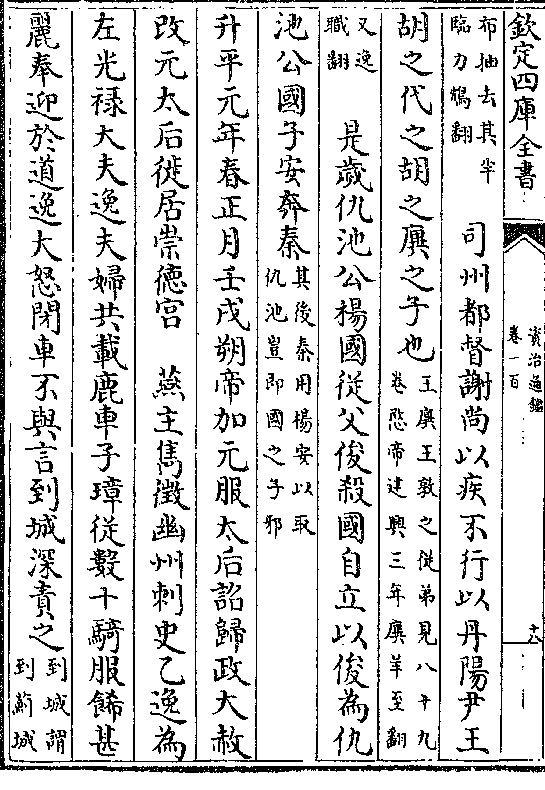 欽定四庫全書
資治通鑑
卷一百
十八
布抽去其半
臨力鴆翻
司州都督謝尚以疾不行以丹陽尹王
胡之代之胡之廙之子也
王廙王敦之從弟見八十九
卷愍帝建興三年廙羊至翻
又逸
職翻
是歲仇池公楊國從父俊殺國自立以俊為仇
池公國子安奔秦
其後秦用楊安以取
仇池豈即國之子邪
升平元年春正月壬戌朔帝加元服太后詔歸政大赦
改元太后徙居崇德宫
燕主雋徵幽州刺史乙逸為
左光禄大夫逸夫婦共載鹿車子璋從數十騎服飾甚
麗奉迎於道逸大怒閉車不與言到城深責之
到城謂
到薊城